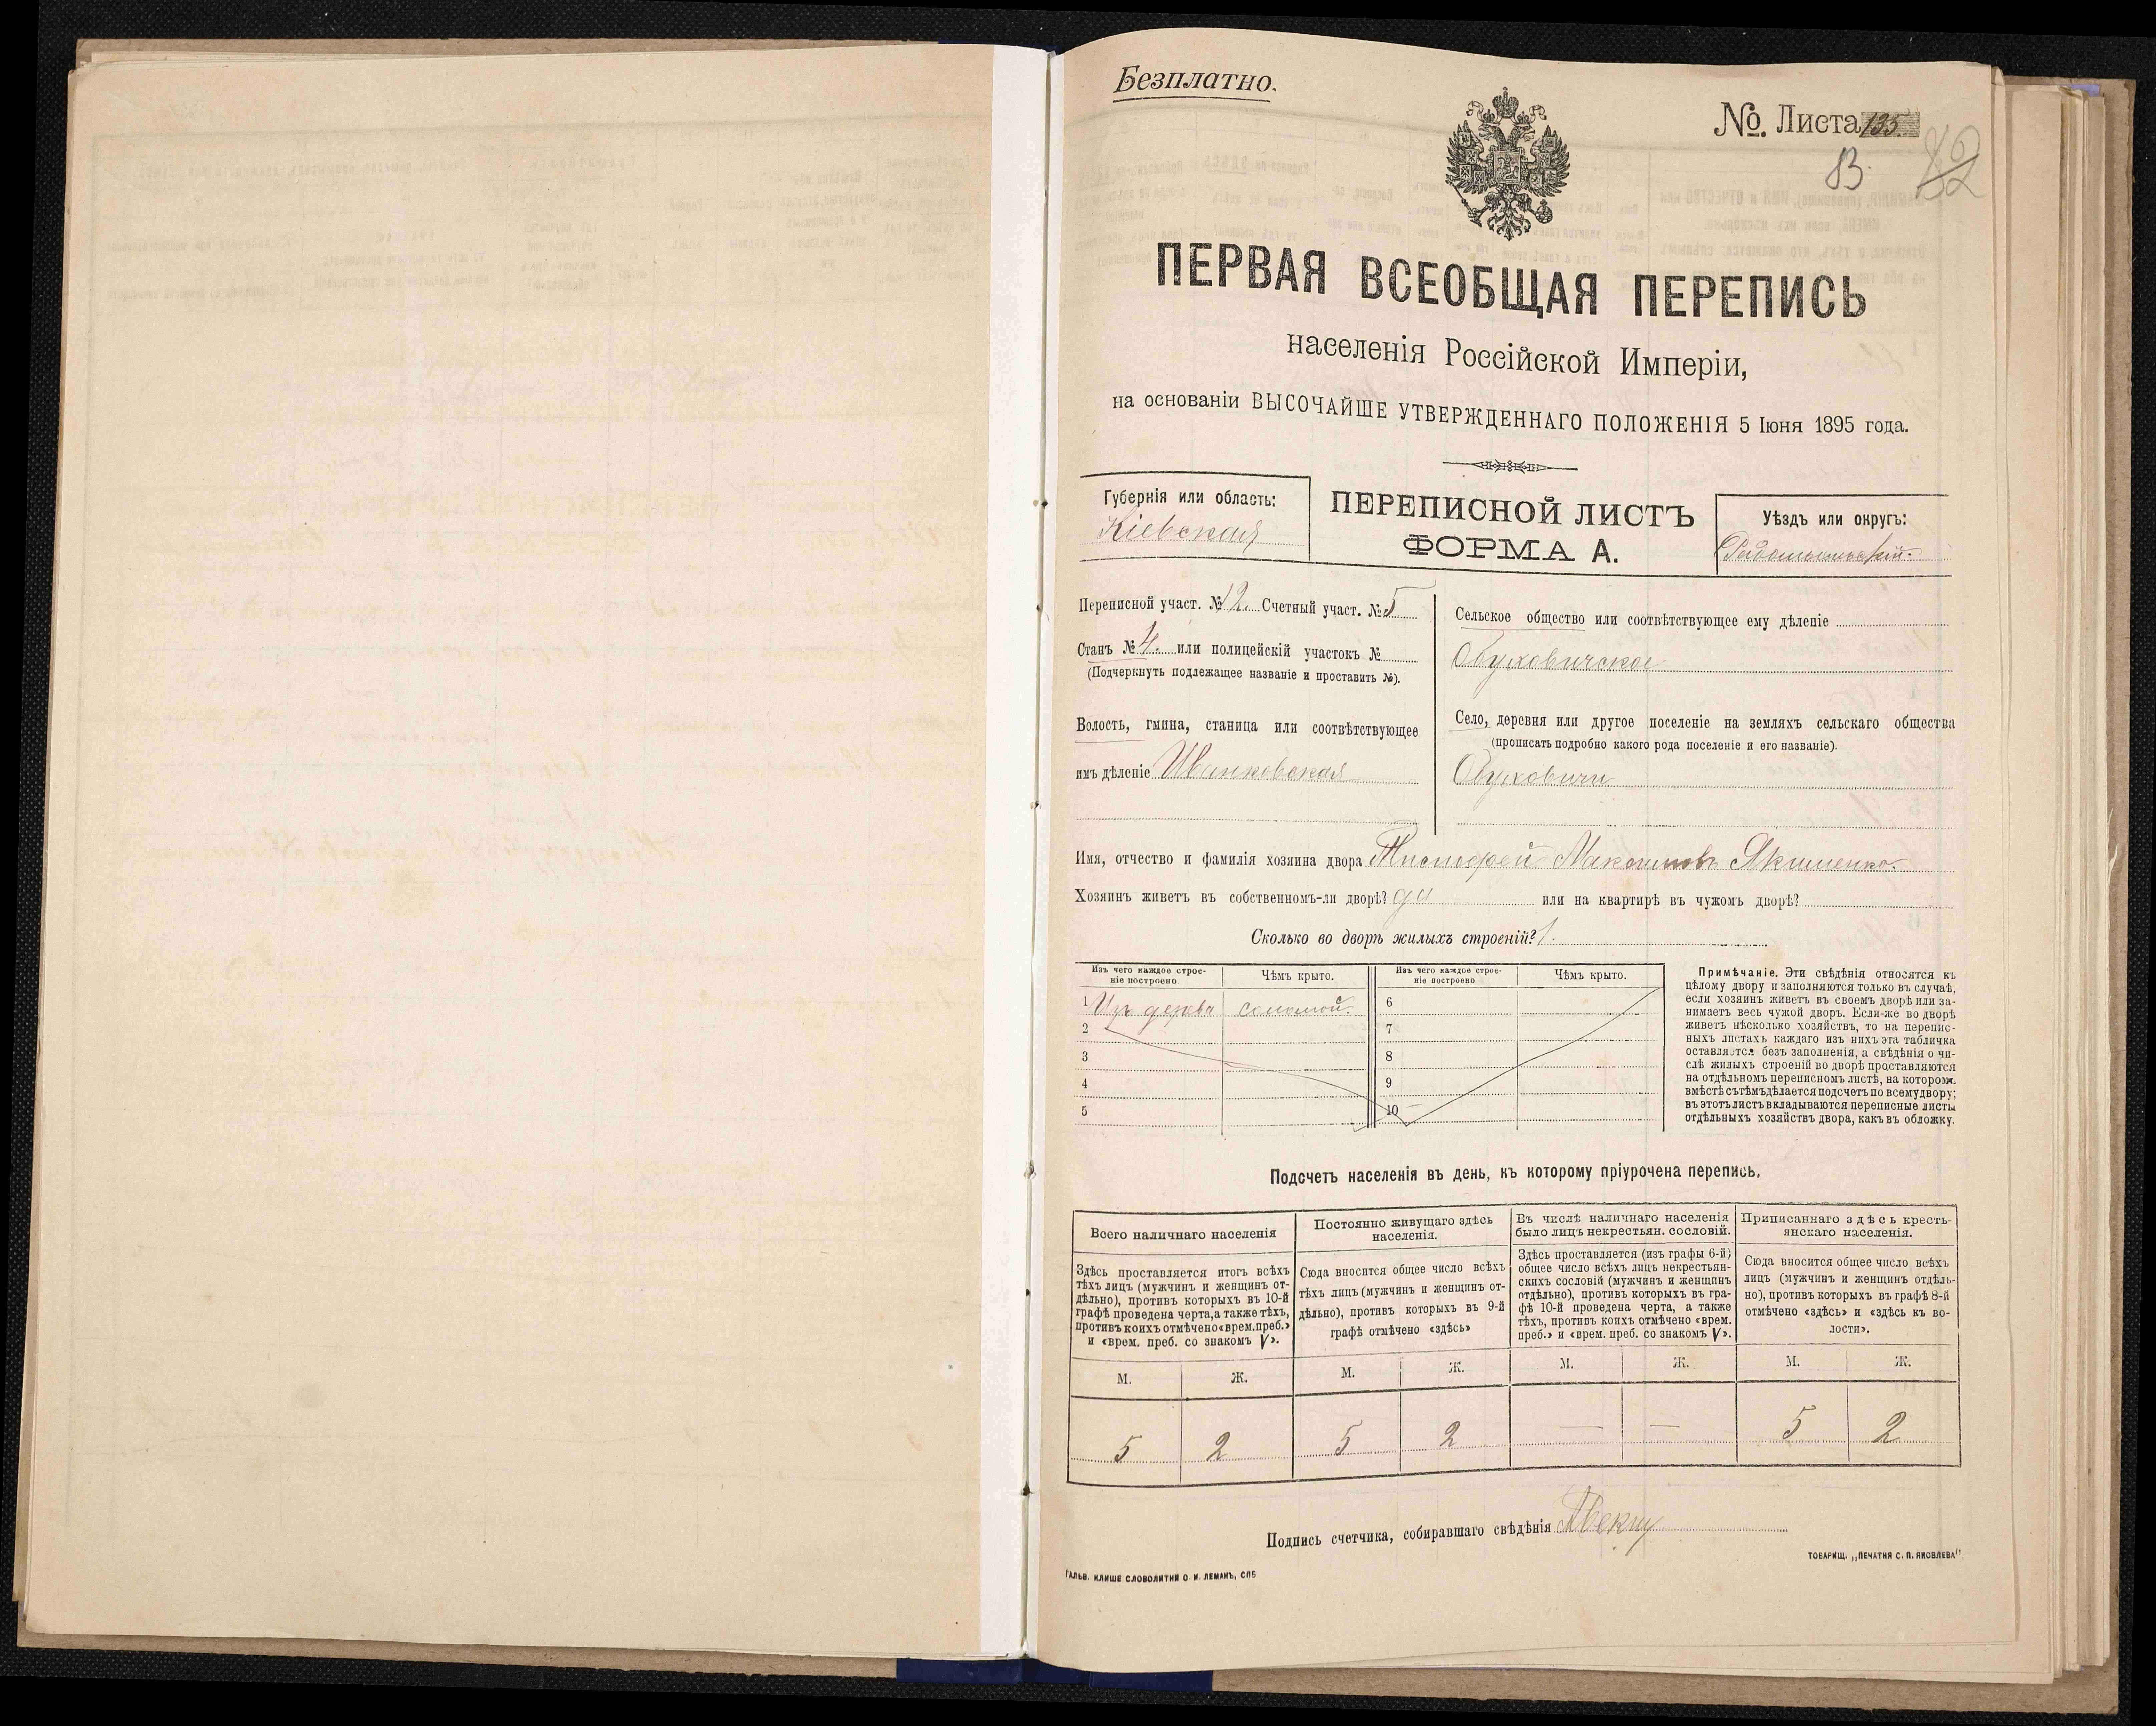 Безплатно.
№. Листа 135.
83
ПЕРВАЯ ВСЕОБЩАЯ ПЕРЕПИСЬ
населенія Россійской Имперіи,
на основаніи ВЫСОЧАЙШЕ УТВЕРЖДЕННАГО ПОЛОЖЕНІЯ 5 Іюня 1895 года.
Губернія или область:
Кіевская
ПЕРЕПИСНОЙ ЛИСТЪ
ФОРМА А.
Уѣздъ или округъ:
Радомысльскій.
Переписной участ. № 12. Счетный участ. № 5
Станъ № 4. или полицейскій участокъ №
(Подчеркнуть подлежащее названіе и проставить №).
Волость, гмина, станица или соотвѣтствующее
имъ дѣленіе Иванковская
Сельское общество или соотвѣтствующее ему дѣленіе
Обуховичское
Село, деревня или другое поселеніе на земляхъ сельскаго общества
(прописать подробно какого рода поселеніе и его названіе).
Обуховичи
Имя, отчество и фамилія хозяина двора Тимофей Максимовъ Якименко.
Хозяинъ живетъ въ собственномъ-ли дворѣ? да или на квартирѣ въ чужомъ дворѣ?
Сколько во дворѣ жилыхъ строеній? 1.
Изъ чего каждое строе-
ніе построено
Чѣмъ крыто.
Изъ чего каждое строе-
ніе построено
Чѣмъ крыто.
1 Изъ дерева соломой. 6
2 7
3 8
4 9
5 10
Примѣчаніе. Эти свѣдѣнія относятся къ
цѣлому двору и заполняются только въ случаѣ,
если хозяинъ живетъ въ своемъ дворѣ или за-
нимаетъ весь чужой дворъ. Если-же во дворѣ
живетъ нѣсколько хозяйствъ, то на перепис-
ныхъ листахъ каждаго изъ нихъ эта табличка
оставляется безъ заполненія, а свѣдѣнія о чи-
слѣ жилыхъ строеній во дворѣ проставляются
на отдѣльномъ переписномъ листѣ, на которомъ
вмѣстѣ съ тѣмъ дѣлается подсчетъ по всему двору;
въ этотъ листъ вкладываются переписные листы
отдѣльныхъ хозяйствъ двора, какъ въ обложку.
Подсчетъ населенія въ день, къ которому пріурочена перепись.
Всего наличнаго населенія
Здѣсь проставляется итогъ всѣхъ
тѣхъ лицъ (мужчинъ и женщинъ от-
дѣльно), противъ которыхъ въ 10-й
графѣ проведена черта, а также тѣхъ,
противъ коихъ отмѣчено «врем. преб.»
и «врем. преб. со знакомъ V».
Постоянно живущаго здѣсь
населенія.
Сюда вносится общее число всѣхъ
тѣхъ лицъ (мужчинъ и женщинъ от-
дѣльно), противъ которыхъ въ 9-й
графѣ отмѣчено «здѣсь»
Въ числѣ наличнаго населенія
было лицъ некрестьян. сословій.
Здѣсь проставляется (изъ графы 6-й)
общее число всѣхъ лицъ некрестьян-
скихъ сословій (мужчинъ и женщинъ
отдѣльно), противъ которыхъ въ гра-
фѣ 10-й проведена черта, а также
тѣхъ, противъ коихъ отмѣчено «врем.
преб.» и «врем. преб. со знакомъ V».
Приписаннаго здѣсь кресть-
янскаго населенія.
Сюда вносится общее число всѣхъ
лицъ (мужчинъ и женщинъ отдѣль-
но), противъ которыхъ въ графѣ 8-й
отмѣчено «здѣсь» и «здѣсь къ во-
лости».
М. Ж. М. Ж. М. Ж. М. Ж.
5 2 5 2 — — 5 2
Подпись счетчика, собиравшаго свѣдѣнія
ТОВАРИЩ. „ПЕЧАТНЯ С. П. ЯКОВЛЕВА"
ГАЛЬВ. КЛИШЕ СЛОВОЛИТНИ О. И. ЛЕМАНЪ, СПБ